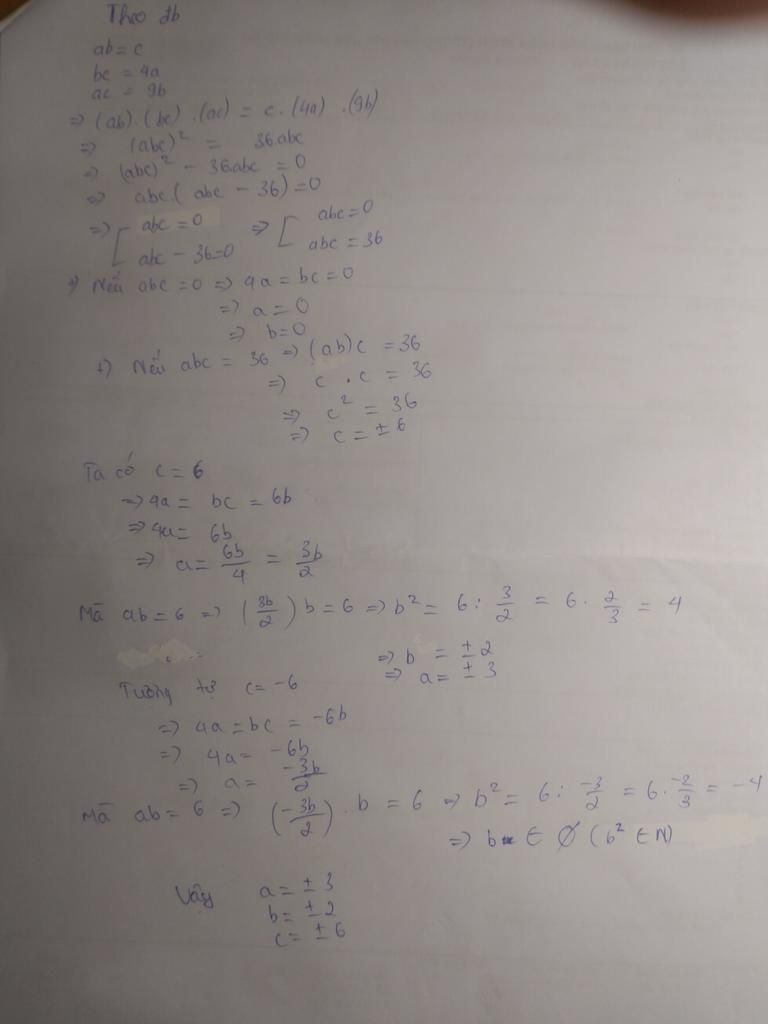 Theo đb
ab = c
bc = 4a
ac = 9b
=> (ab).(bc).(ac) = c.(4a).(9b)
=> (abc)² = 36.abc
=> (abc)² - 36abc = 0
=> abc.(abc - 36) = 0
=> [ abc = 0 => [ abc = 0
abc - 36 = 0 abc = 36
+) Nếu abc = 0 => 4a = bc = 0
=> a = 0
=> b = 0
+) Nếu abc = 36 => (ab)c = 36
=> c.c = 36
=> c² = 36
=> c = ± 6
Ta có c = 6
=> 4a = bc = 6b
=> 4a = 6b
=> a = 6b/4 = 3b/2
Mà ab = 6 => (3b/2)b = 6 => b² = 6 : 3/2 = 6 . 2/3 = 4
=> b = ± 2
=> a = ± 3
Tương tự c = -6
=> 4a = bc = -6b
=> 4a = -6b
=> a = -3b/2
Mà ab = 6 => (-3b/2).b = 6 => b² = 6 : -3/2 = 6 . -2/3 = -4
=> b ∈ ∅ (b² ∈ N)
Vậy a = ± 3
b = ± 2
c = ± 6